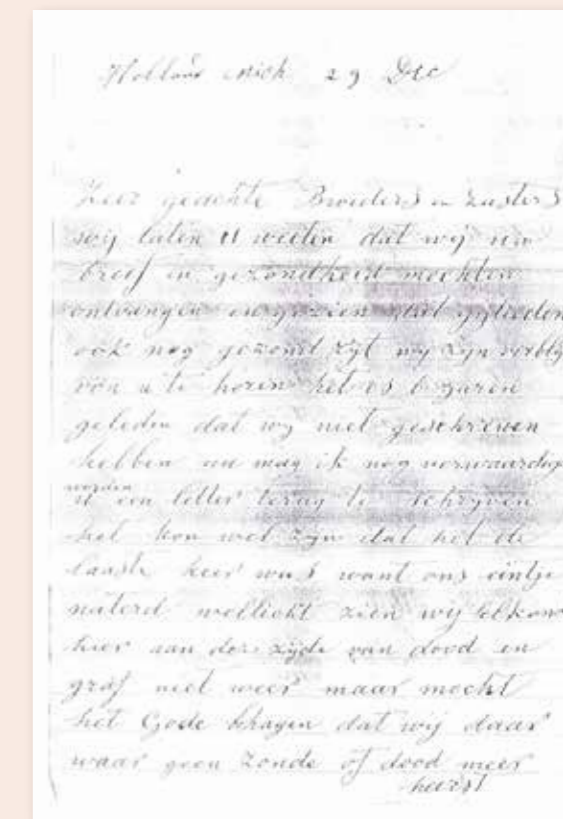 Holland Mich 29 Dec
Zeer geachte Broeders en Zusters
wij laten U weeten dat wij uw
brief in gezondheid mochten
ontvangen en gezien dat gylieden
ook nog gezond zyt wy zyn verbly
van u te horen het is 6 jaren
geleden dat wy niet geschreven
hebben nu mag ik nog verwaardigt
worden
U een letter terug te schryven
het kon wel zyn dat het de
laaste keer was want ons eintje
naterd wellicht zien wy elkand
hier aan deze zyde van dood en
graf niet weer maar mocht
het Gode bhagen dat wij daar
waar geen Zonde of dood meer
heerst